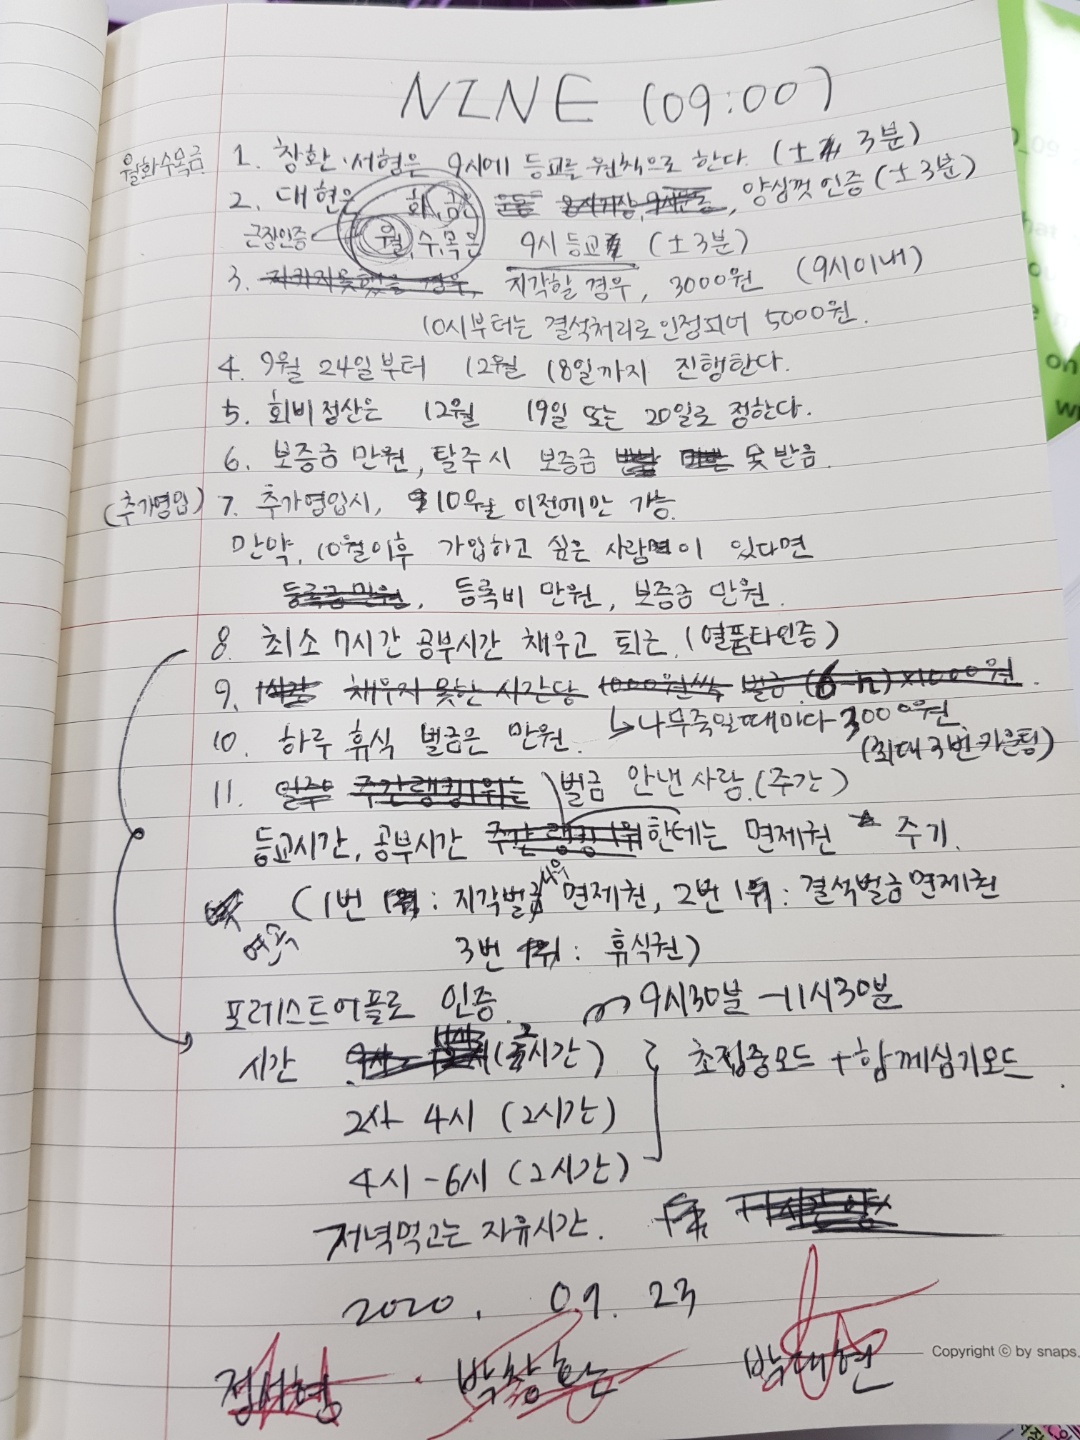 NINE (09:00)
월화수목금
1. 창환·서형은 9시에 등교를 원칙으로 한다. (± 3분)
2. 대현은 화,금은 양심껏 인증 (±3분)
근장인증 월,수,목은 9시 등교 (±3분)
3. 지각할 경우, 3000원 (9시이내)
10시부터는 결석처리로 인정되어 5000원.
4. 9월 24일부터 12월 18일까지 진행한다.
5. 회비정산은 12월 19일 또는 20일로 정한다.
6. 보증금 만원, 탈주시 보증금 못 받음.
(추가영입) 7. 추가영입시, 10월 이전에만 가능.
만약, 10월이후 가입하고 싶은 사람이 있다면
등록금 만원, 등록비 만원, 보증금 만원.
8. 최소 7시간 공부시간 채우고 퇴근. (열품타인증)
9. 채우지 못한 시간당 1000원씩 벌금 (6-n)×1000원.
↳나무죽일때마다 3000원
10. 하루 휴식 벌금은 만원. (최대 3번 카운팅)
11. 주간랭킹1위는 벌금 안낸사람.(주간)
등교시간, 공부시간 주간랭킹1위한테는 면제권 주기.
(1번 : 지각벌금 면제권, 2번 : 결석벌금면제권
연속
3번 : 휴식권)
포레스트어플로 인증. 9시30분-11시30분
시간 (2시간) 초집중모드+함께심기모드
2시-4시 (2시간)
4시-6시 (2시간)
저녁먹고는 자유시간.
2020. 09. 23
정서형 · 박창환 박대현
Copyright ⓒ by snaps.